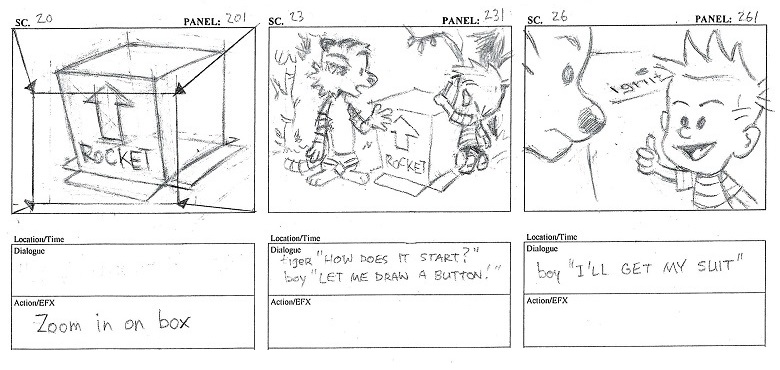 SC. 20 PANEL: 201
ROCKET
Location/Time
Dialogue
Action/EFX
Zoom in on box
SC. 23 PANEL: 231
ROCKET
Location/Time
Dialogue
tiger "HOW DOES IT START?"
boy "LET ME DRAW A BUTTON!"
Action/EFX
SC. 26 PANEL: 261
Location/Time
Dialogue
boy "I'LL GET MY SUIT"
Action/EFX